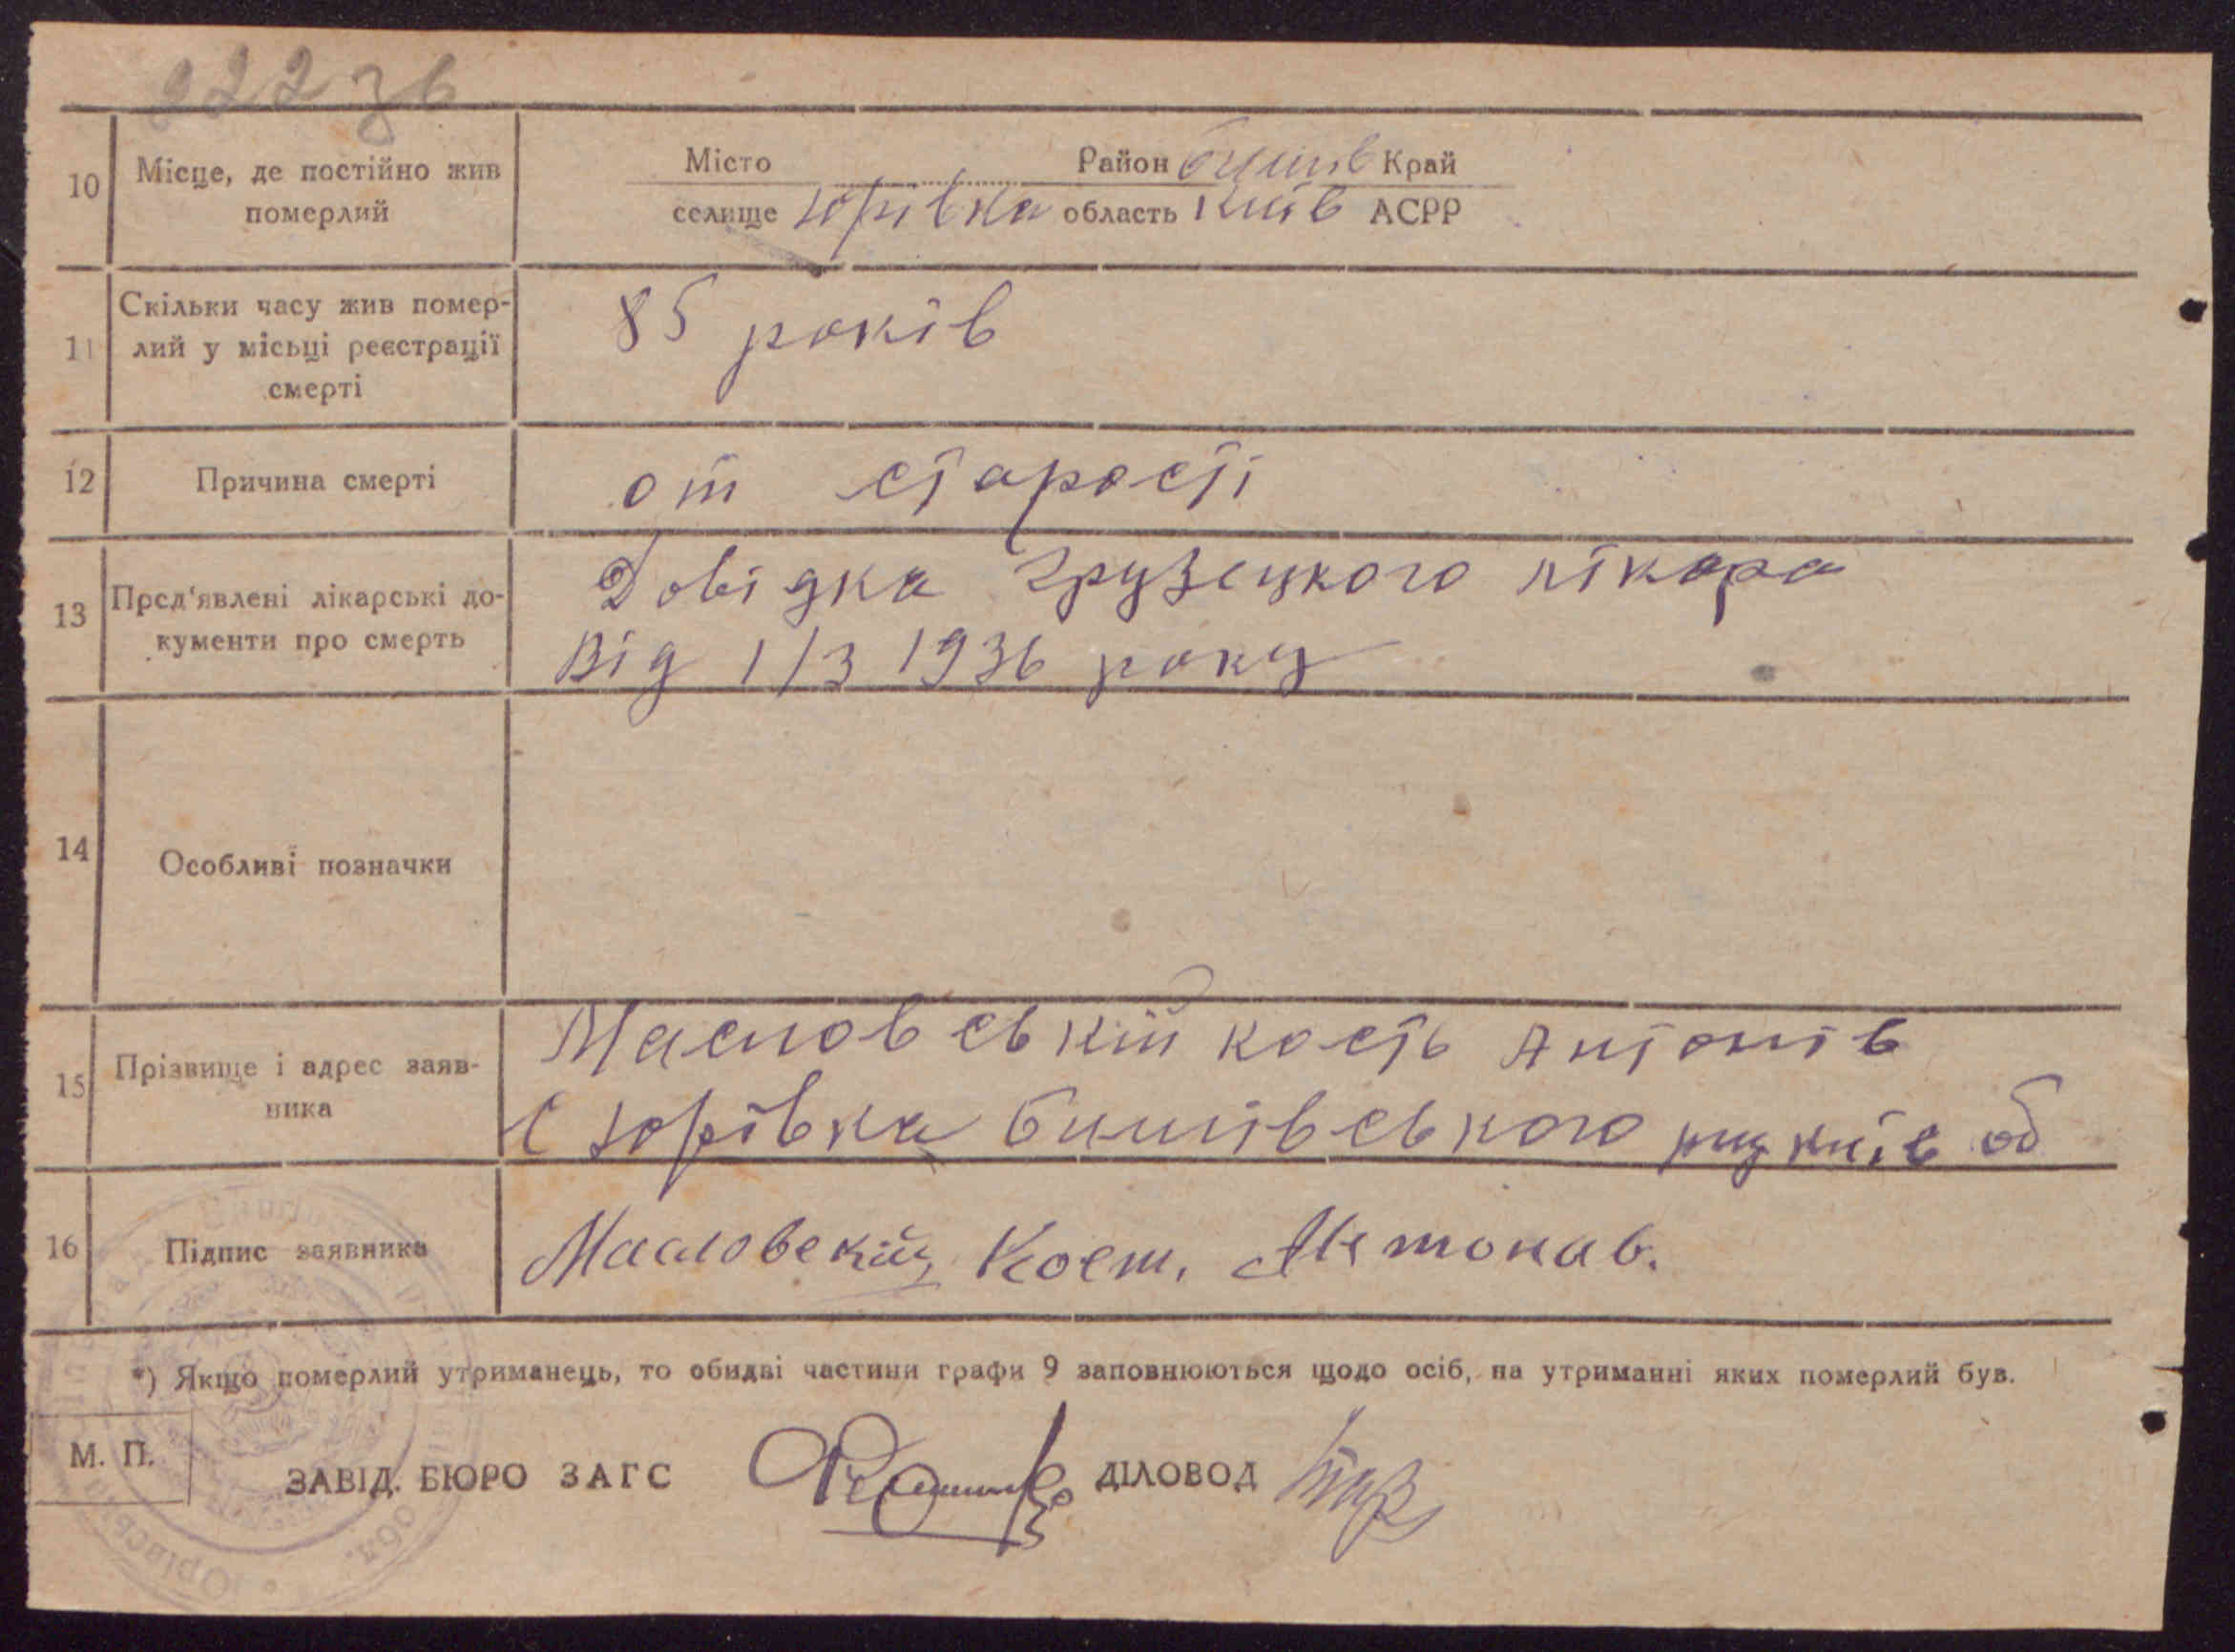 222 зв
10 Місце, де постійно жив померлий
Місто Район Бишів Край
селище Юрівка область Київ АСРР
11 Скільки часу жив помер-
лий у місьці реєстрації
смерті
85 років
12 Причина смерті
от старості
13 Пред'явлені лікарські до-
кументи про смерть
Довідка Грузецкого лікара
Від 1/3 1936 року
14 Особливі позначки
15 Прізвище і адрес заяв-
ника
Масловській кость Антонів
С Юрівка Бишівського київ об
16 Підпис заявника
Масловскій Кост, Антонав.
*) Якщо померлий утриманець, то обидві частини графи 9 заповнюються щодо осіб, на утриманні яких померлий був.
М. П.
ЗАВІД. БЮРО ЗАГС ДІЛОВОД
Юрівськ обл.